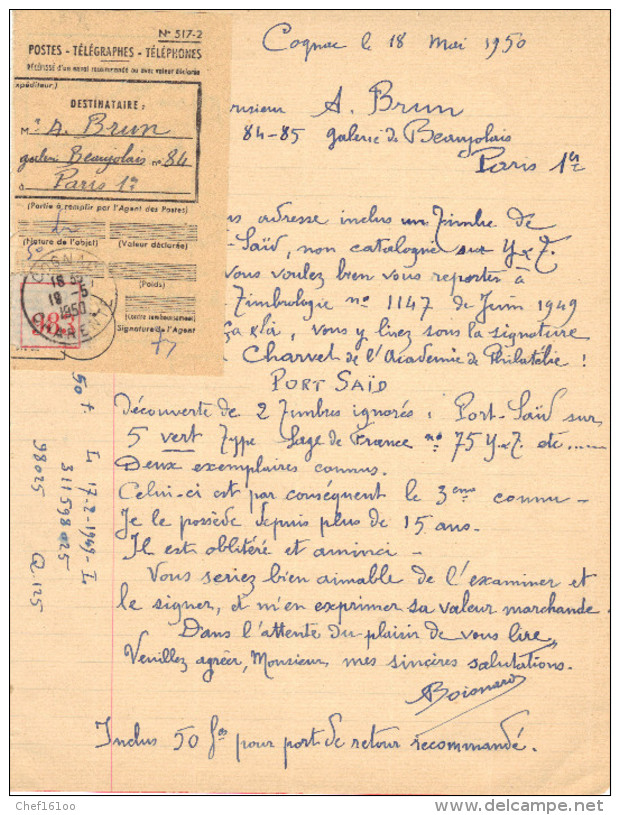 N° 517-2
POSTES - TÉLÉGRAPHES - TÉLÉPHONES
Récépissé d'un envoi recommandé ou avec valeur déclarée
expéditeur.)
DESTINATAIRE :
M. A. Brun
galerie Beaujolais n° 84
à Paris 1er
(Partie à remplir par l'Agent des Postes)
(Nature de l'objet) (Valeur déclarée)
(Poids)
(Contre remboursement)
Signature de l'Agent
18 -5
1950
Cognac le 18 Mai 1950
onsieur A. Brun
84-85 galerie de Beaujolais
Paris 1er
us adresse inclus un Timbre de
-Saïd, non catalogué sur Y&T.
vous voulez bien vous reporter à
Timbrologie n° 1147 de Juin 1949
vous y lirez sous la signature
Charvet de l'Academie de Philatélie !
PORT SAÏD
Découverte de 2 Timbres ignorés : Port-Saïd sur
5 vert Type Sage de France n° 75 Y&T etc......
Deux exemplaires connus.
Celui-ci est par conséquent le 3eme connu -
Je le possède depuis plus de 15 ans.
Il est oblitéré et aminci -
Vous seriez bien aimable de l'examiner et
le signer, et m'en exprimer sa valeur marchande.
Dans l'attente du plaisir de vous lire,
Veuillez agréer, Monsieur, mes sincères salutations.
Boisnard
Inclus 50 fcs pour port de retour recommandé.
50 f
L 17-2-1949-L
311598025
98025 Q.125
Chef16100
www.delcampe.net